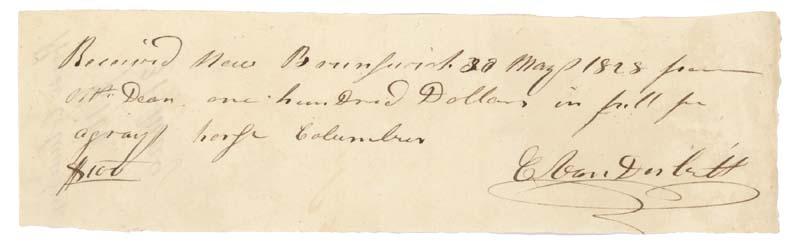 Received New Brunswick 30 May 1828 from
Mr. Dean one hundred Dollars in full for
a gray horse Columbus
$100
C Van Derbilt